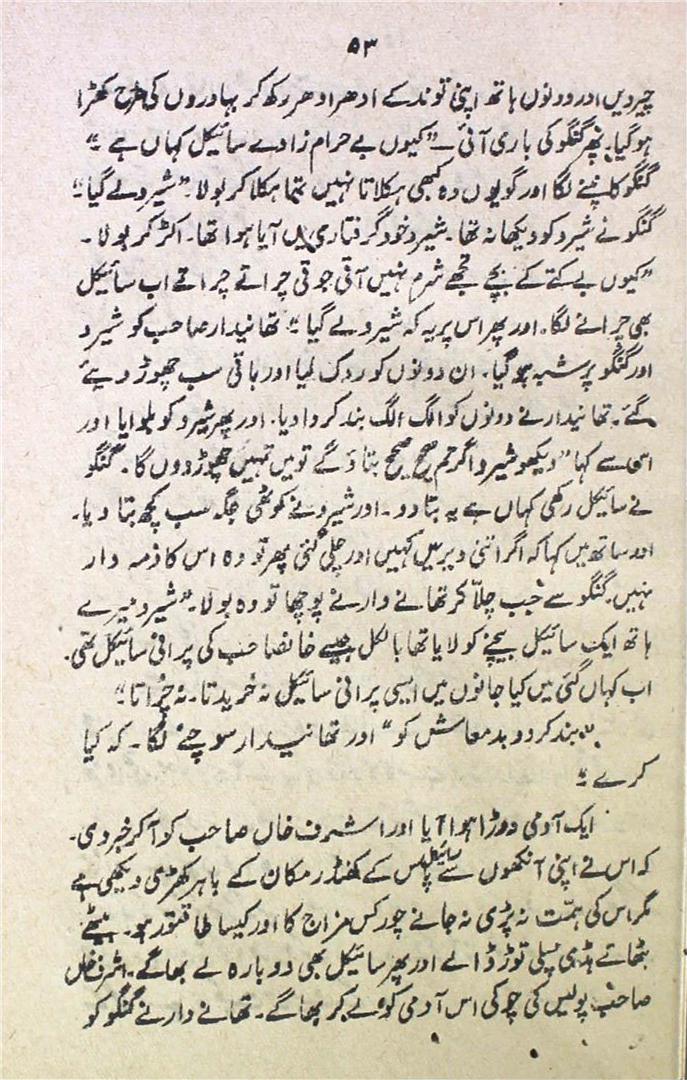 ۵۳
چیر دیں اور دونوں ہاتھ اپنی توند کے ادھر ادھر رکھ کر بہادروں کی طرح کھڑا
ہو گیا۔ پھر گنگو کی باری آئی۔ "کیوں بے حرام زادے سائیکل کہاں ہے"
گنگو کانپنے لگا اور گو یوں وہ کبھی ہکلاتا نہیں تھا ہکلا کر بولا۔ "شیرو لے گیا"
گنگو نے شیرو کو دیکھا نہ تھا۔ شیرو خود گرفتاری میں آیا ہوا تھا۔ اکڑ کر بولا۔
"کیوں بے کتے کے بچے تجھے شرم نہیں آتی جوتی چراتے چراتے اب سائیکل
بھی چرانے لگا۔ اور پھر اس پر یہ کہ شیرو لے گیا" تھانیدار صاحب کو شیرو
اور گنگو پر شبہ ہو گیا۔ ان دونوں کو روک لیا اور باقی سب چھوڑ دیئے
گئے۔ تھانیدار نے دونوں کو الگ الگ بند کروا دیا۔ اور پھر شیرو کو بلوایا اور
اس سے کہا "دیکھو شیرو اگر تم صحیح صحیح بتا دو گے تو میں تمہیں چھوڑ دوں گا۔ گنگو
نے سائیکل رکھی کہاں ہے یہ بتا دو۔ اور شیرو نے کوٹھی جگہ سب کچھ بتا دیا۔
اور ساتھ میں کہا کہ اگر اتنی دیر میں کہیں اور چلی گئی پھر تو وہ اس کا ذمہ دار
نہیں۔ گنگو سے جب چلّا کر تھانے دار نے پوچھا تو وہ بولا۔ "شیرو میرے
ہاتھ ایک سائیکل بیچنے کو لایا تھا بالکل جیسے خانصاحب کی پرانی سائیکل تھی۔
اب کہاں گئی میں کیا جانوں میں ایسی پرانی سائیکل نہ خریدتا۔ نہ چراتا"
"بند کر دو بدمعاش کو" اور تھانیدار سوچنے لگا۔ کہ کیا
کرے"
ایک آدمی دوڑا ہوا آیا اور اشرف خاں صاحب کو آ کر خبر دی۔
کہ اس نے اپنی آنکھوں سے سائیکل پاس کے کھنڈر مکان کے باہر کھڑی دیکھی ہے
مگر اس کی ہمّت نہ پڑی نہ جانے چور کس مزاج کا اور کیسا طاقتور ہو۔ بیٹھے
بٹھائے ہڈی پسلی توڑ ڈالے اور پھر سائیکل بھی دوبارہ لے بھاگے۔ اشرف خاں
صاحب پولیس کی چوکی اس آدمی کو لے کر بھاگے۔ تھانے دار نے گنگو کو